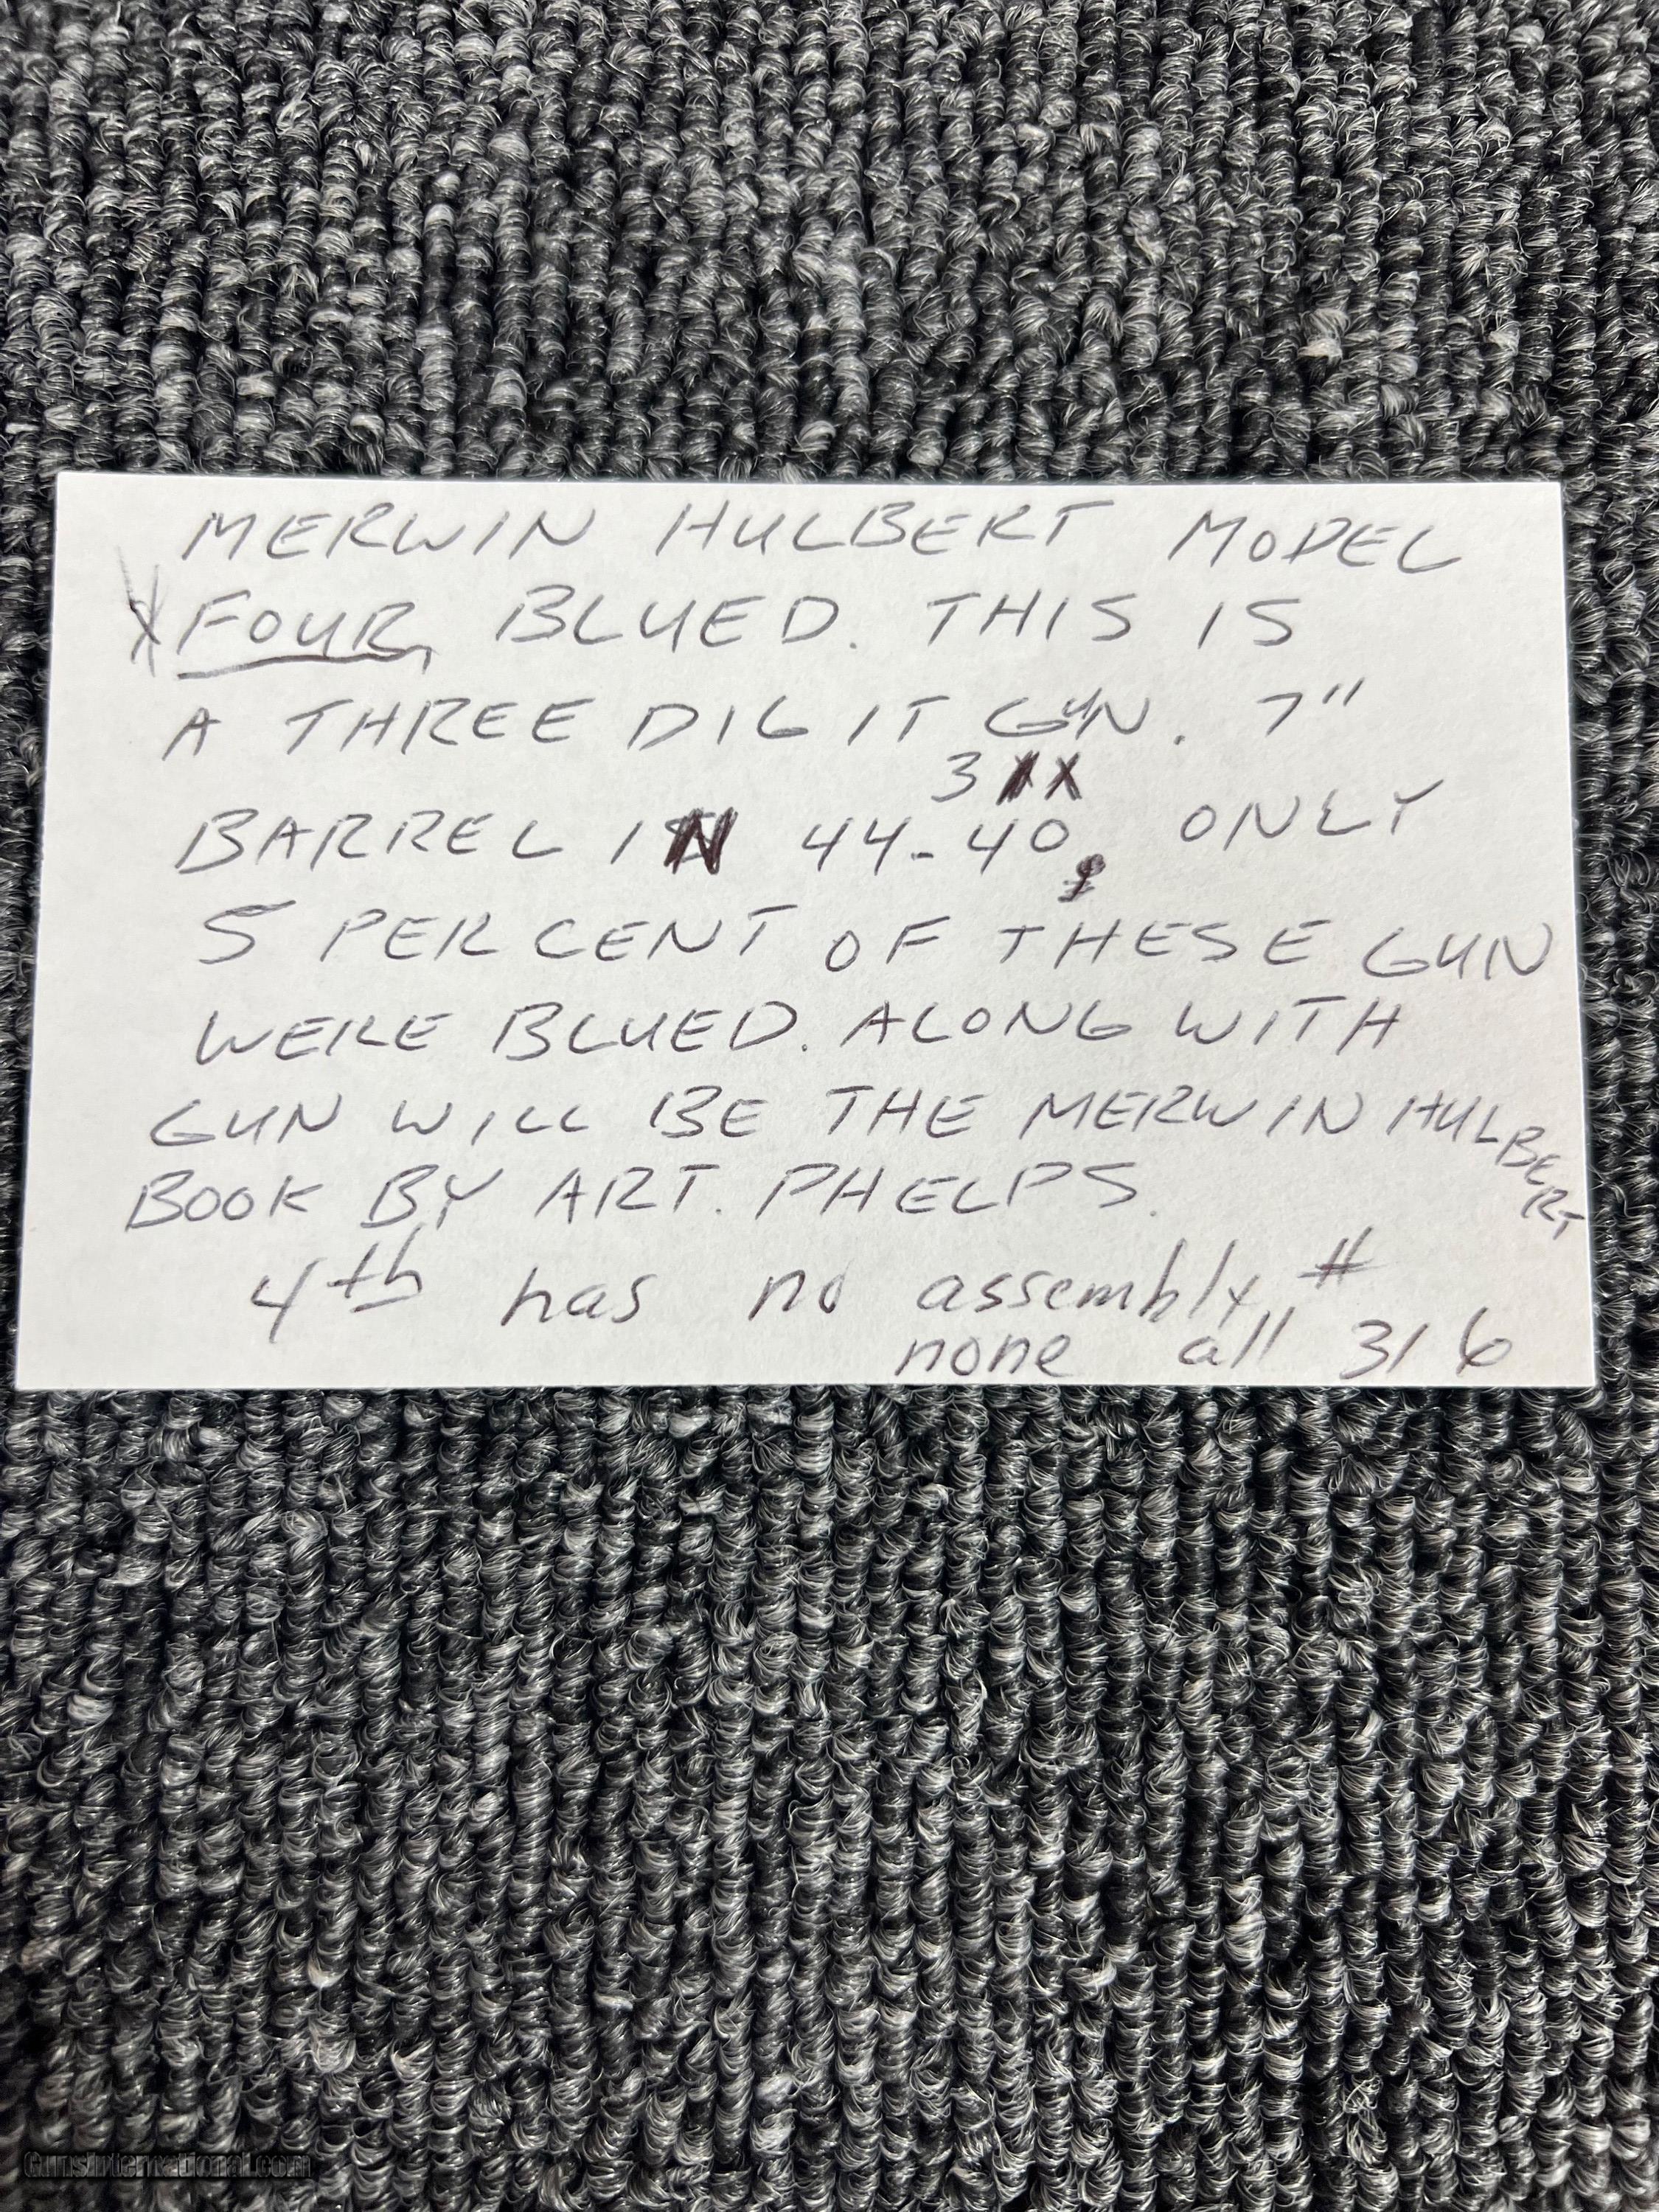 MERWIN HULBERT MODEL
X FOUR, BLUED. THIS IS
A THREE DIGIT GUN. 7"
3XX
BARREL IN 44-40. ONLY
5 PERCENT OF THESE GUN
WERE BLUED. ALONG WITH
GUN WILL BE THE MERWIN HULBERT
BOOK BY ART. PHELPS.
4th has no assembly #
none all 316
GunsInternational.com